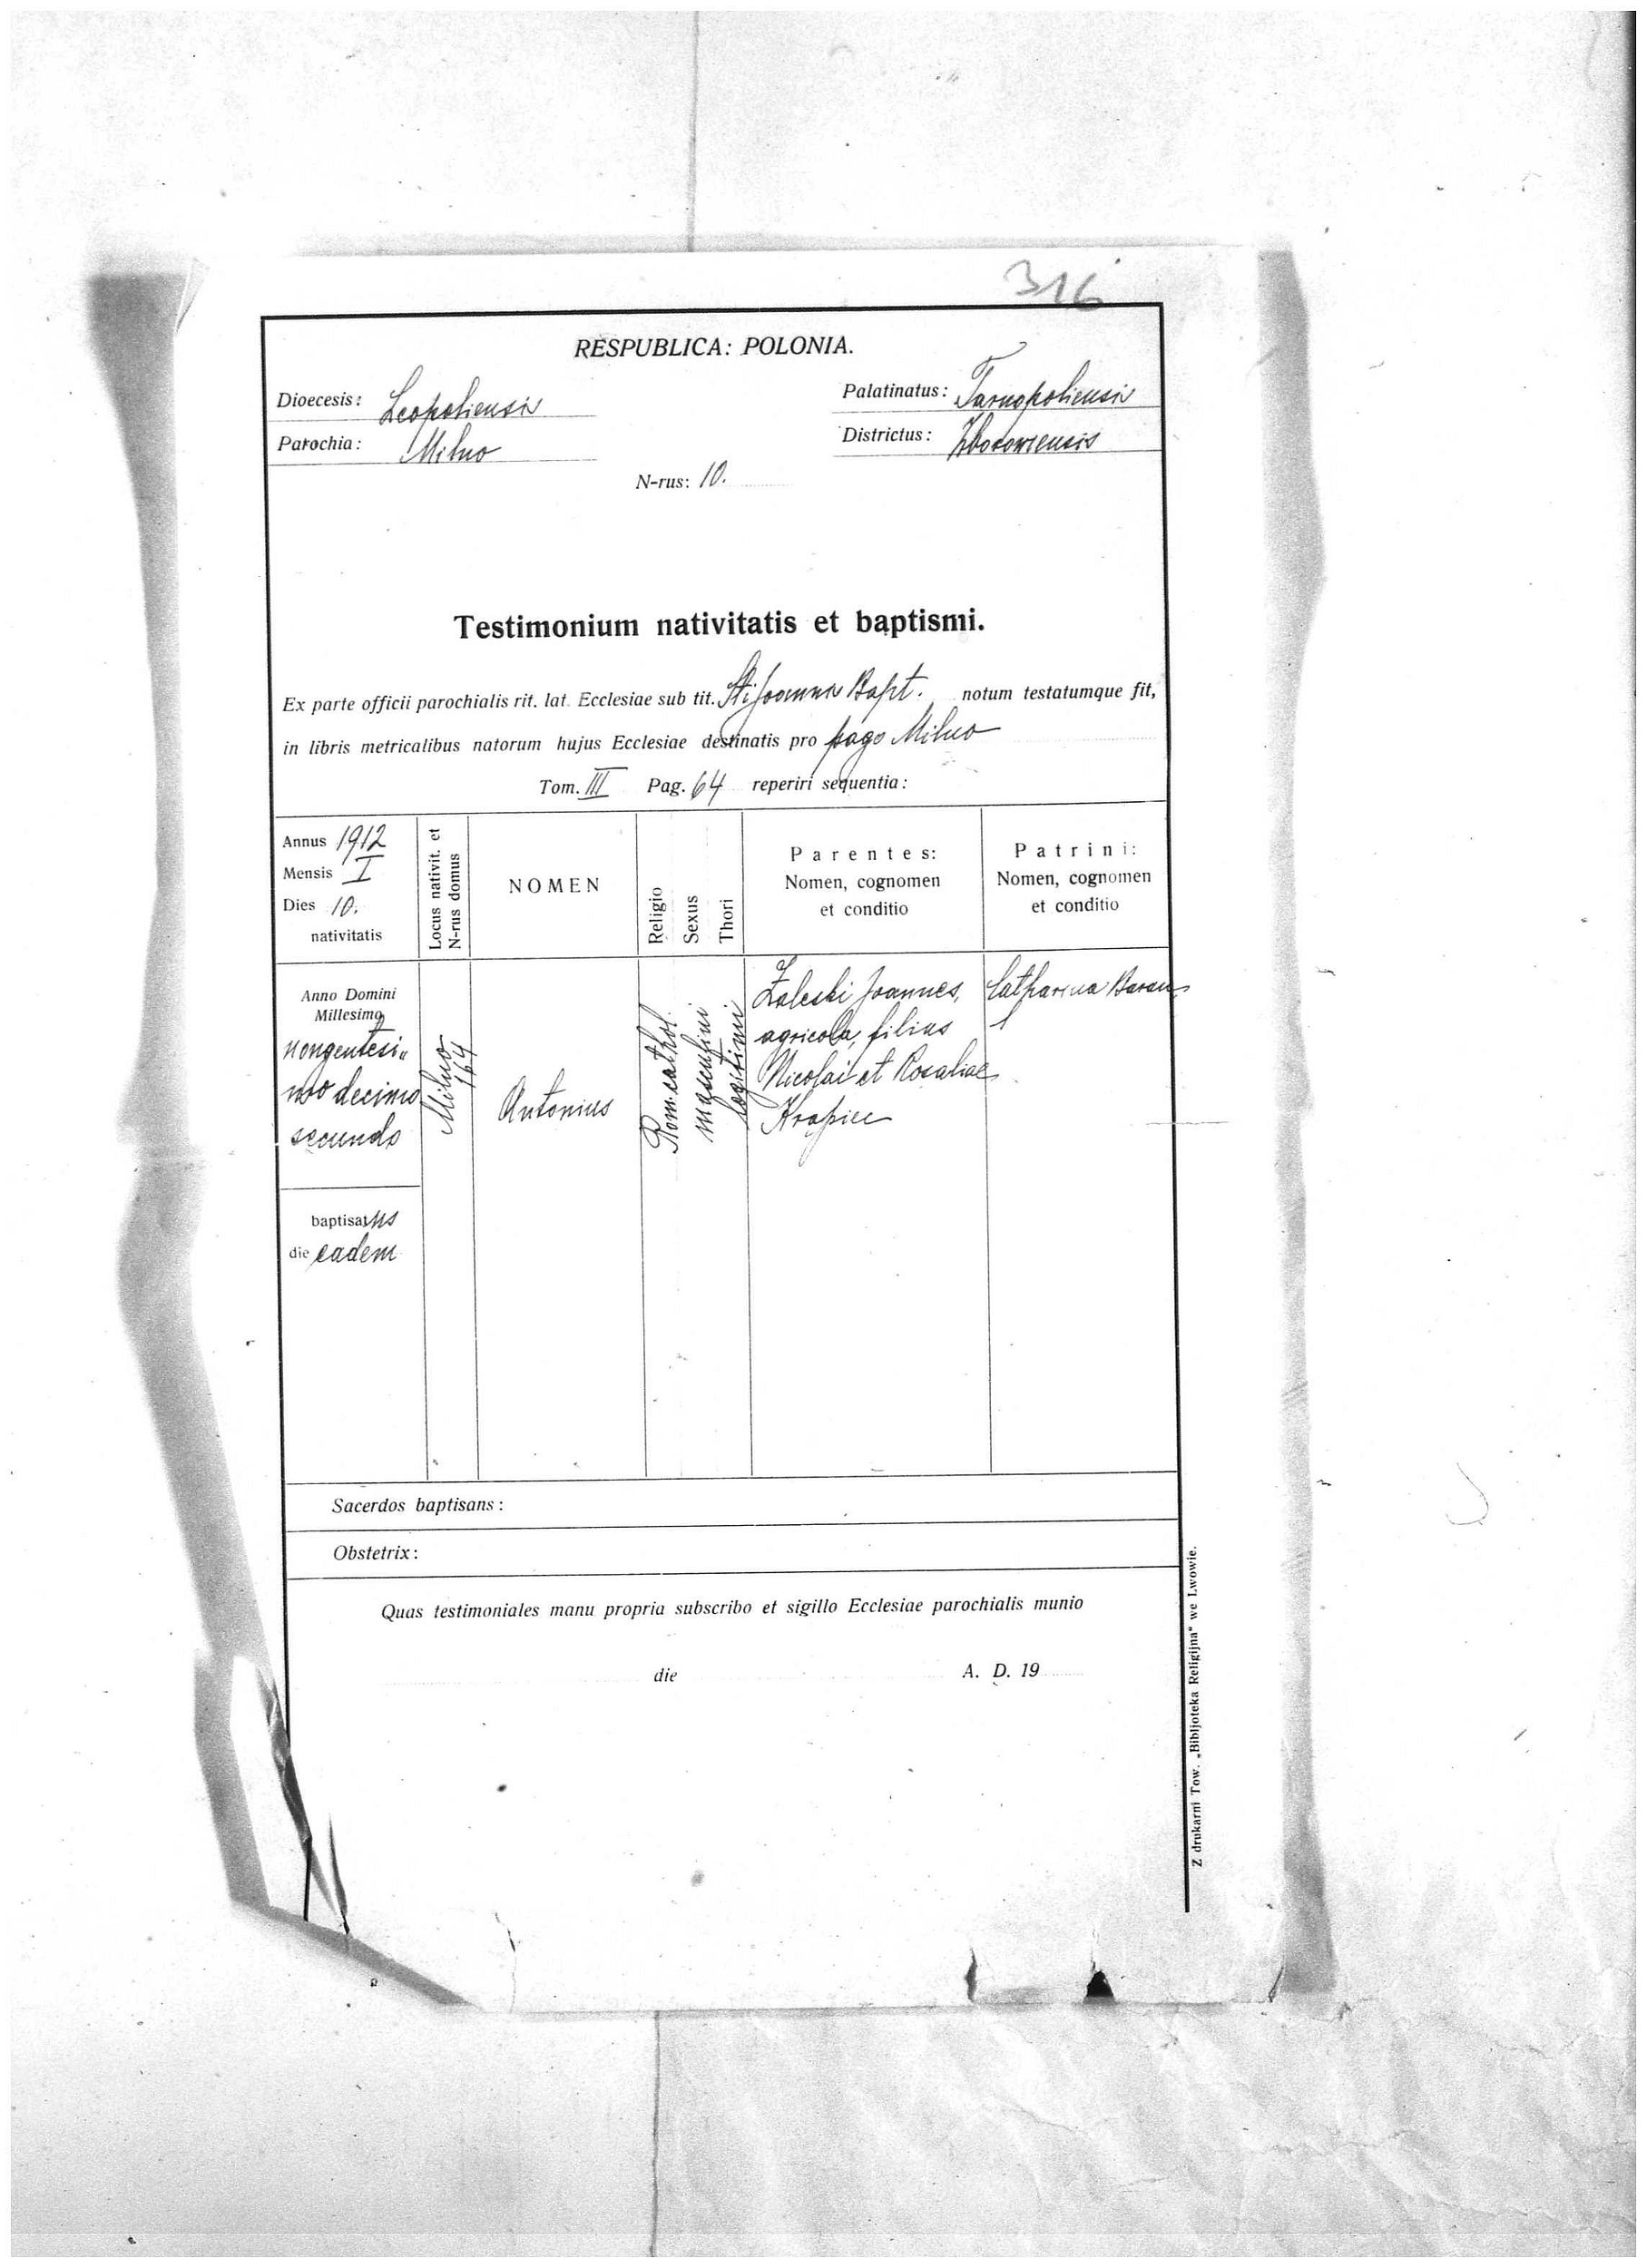 316
RESPUBLICA: POLONIA.
Dioecesis: Leopoliensis Palatinatus: Tarnopoliensis
Parochia: Milno Districtus: Zborowiensis
N-rus: 10.
Testimonium nativitatis et baptismi.
Ex parte officii parochialis rit. lat. Ecclesiae sub tit. Sti Joannis Bapt. notum testatumque fit,
in libris metricalibus natorum hujus Ecclesiae destinatis pro pago Milno
Tom. III Pag. 64 reperiri sequentia:
Annus 1912
Mensis I
Dies 10.
nativitatis
Locus nativit. et
N-rus domus
NOMEN
Religio
Sexus
Thori
Parentes:
Nomen, cognomen
et conditio
Patrini:
Nomen, cognomen
et conditio
Anno Domini
Millesimo
nongentesi„
mo decimo
secundo
Milno
164
Antonius
Rom. cathol.
masculini
legitimi
Zaleski Joannes,
agricola, filius
Nicolai et Rosaliae
Krąpiec
Catharina Baran
baptisatus
die eadem
Sacerdos baptisans:
Obstetrix:
Quas testimoniales manu propria subscribo et sigillo Ecclesiae parochialis munio
die A. D. 19
Z drukarni Tow. „Bibljoteka Religijna" we Lwowie.